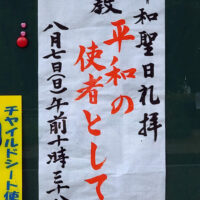 和聖日礼拝
教
平和の
使者として
八月七日(日)午前十時三十
チャイルドシート使